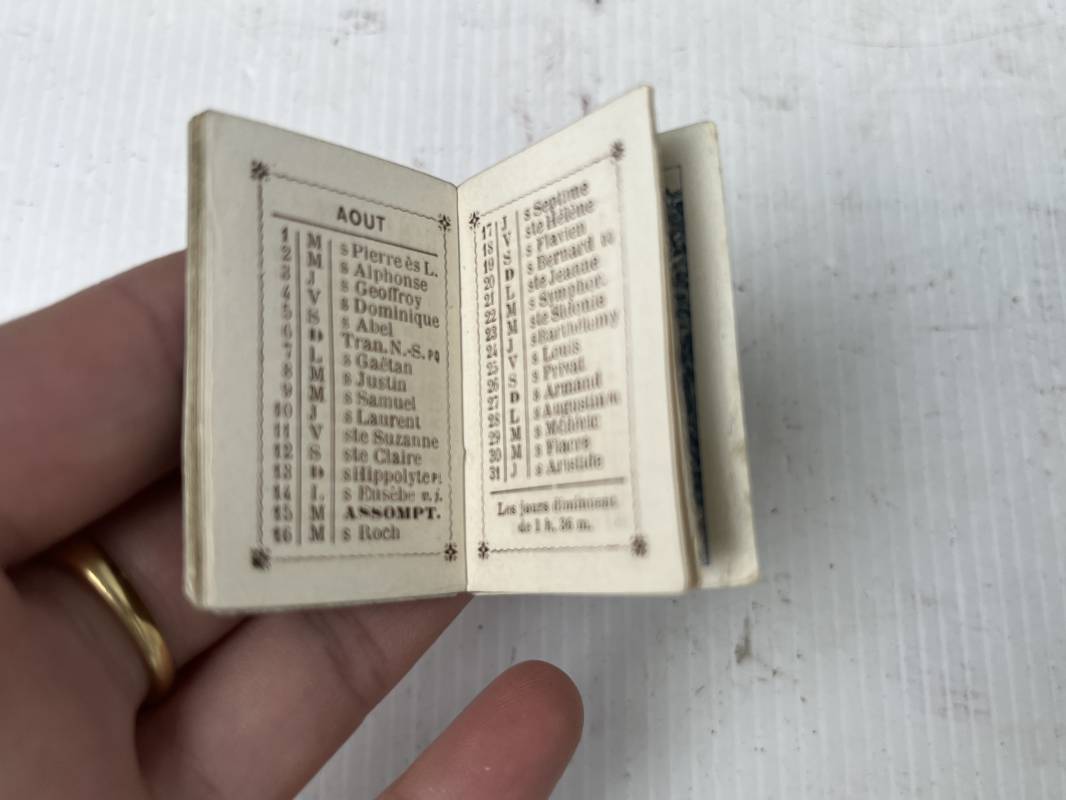 AOUT
1 M s Pierre ès L.
2 M s Alphonse
3 J s Geoffroy
4 V s Dominique
5 S s Abel
6 D Tran. N.-S. PQ
7 L s Gaëtan
8 M s Justin
9 M s Samuel
10 J s Laurent
11 V ste Suzanne
12 S ste Claire
13 D s Hippolyte
14 L s Eusèbe v. j.
15 M ASSOMPT.
16 M s Roch
17 J s Septime
18 V ste Hélène
19 S s Flavien
20 D s Bernard
21 L ste Jeanne
22 M s Symphor.
23 M ste Sidonie
24 J s Barthélemy
25 V s Louis
26 S s Privat
27 D s Armand
28 L s Augustin
29 M s Médéric
30 M s Fiacre
31 J s Aristide
Les jours diminuent
de 1 h. 36 m.